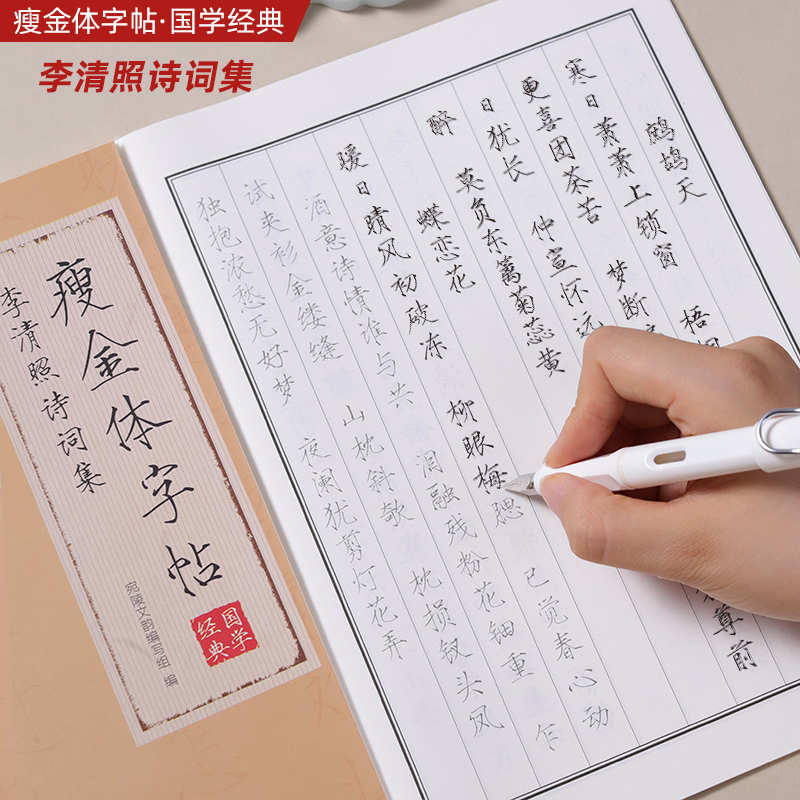 瘦金体字帖·国学经典
李清照诗词集
鹧鸪天
寒日萧萧上锁窗 梧
更喜团茶苦 梦断
日犹长 仲宣怀远 尊前
醉 莫负东篱菊蕊黄
蝶恋花
暖日晴风初破冻 柳眼梅腮 已觉春心动
酒意诗情谁与共 泪融残粉花钿重 乍
试夹衫金缕缝 山枕斜欹 枕损钗头凤
独抱浓愁无好梦 夜阑犹剪灯花弄
瘦金体字帖
李清照诗词集
宛陵文韵编写组 编
国学经典